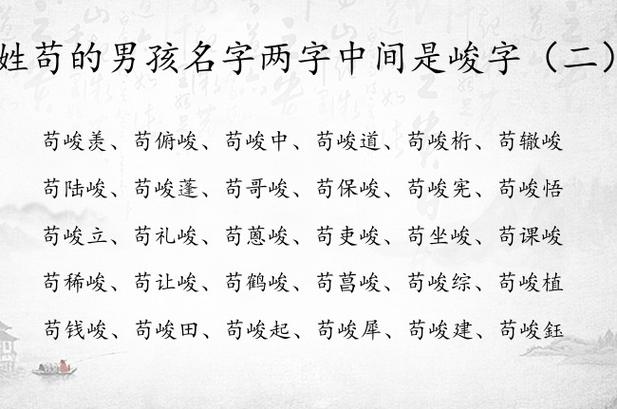 姓苟的男孩名字两字中间是峻字（二）
苟峻羡、苟俯峻、苟峻中、苟峻道、苟峻桁、苟辙峻
苟陆峻、苟峻蓬、苟哥峻、苟保峻、苟峻宪、苟峻悟
苟峻立、苟礼峻、苟蒽峻、苟吏峻、苟坐峻、苟课峻
苟稀峻、苟让峻、苟鹤峻、苟菖峻、苟峻综、苟峻植
苟钱峻、苟峻田、苟峻起、苟峻犀、苟峻建、苟峻鈺